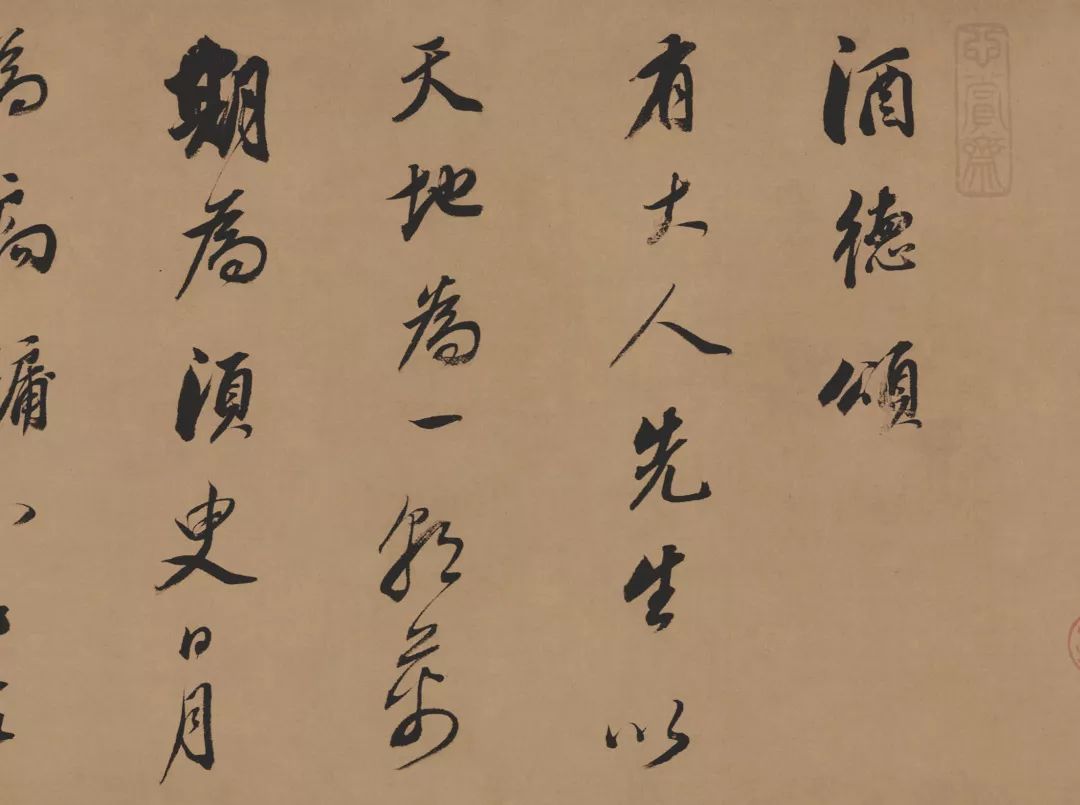 酒德頌
有大人先生以
天地為一朝萬
期為須臾日月
為扃牖八